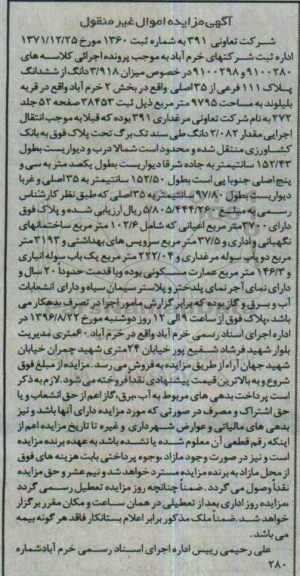 آگهی مزایده اموال غیر منقول
شرکت تعاونی ۳۹۱ به شماره ثبت ۱۳۶۰ مورخ ۱۳۷۱/۱۲/۲۵
اداره ثبت شرکتهای خرم آباد به موجب پرونده اجرائی کلاسه های
۹۱۰۰۲۸۰ و ۹۱۰۰۲۹۸ در خصوص میزان ۳/۹۱۸ دانگ از ششدانگ
پلاک ۱۱۱ فرعی از ۳۵ اصلی واقع در بخش ۲ خرم آباد واقع در قریه
بلیلوند به مساحت ۹۷۹۵ متر مربع ذیل ثبت ۳۸۴۵۳ صفحه ۵۲ جلد
۲۷۲ به نام شرکت تعاونی مرغداری ۳۹۱ بوده که قبلا به موجب انتقال
اجرایی مقدار ۲/۰۸۲ دانگ طی سند تک برگ تحت پلاک فوق به بانک
کشاورزی منتقل شده و محدود است شمالا درب و دیواریست بطول
۱۵۲/۴۳ سانتیمتر به جاده شرقا دیواریست بطول یکصد متر به سی و
پنج اصلی جنوبا پی است بطول ۱۵۲/۵۰ سانتیمتر به ۳۵ اصلی و غربا
دیواریست بطول ۹۷/۸۰ سانتیمتر به ۳۵ اصلی که طبق نظر کارشناس
رسمی به مبلغ ۵/۸۰۵/۴۴۴/۲۶۰ ریال ارزیابی شده و پلاک فوق
دارای ۳۷۰۰ متر مربع اعیانی که شامل ۱۰۲/۶ متر مربع ساختمانهای
نگهبانی و اداری و ۳۷/۵ متر مربع سرویس های بهداشتی و ۳۱۹۳ متر
مربع دو باب سوله مرغداری و ۲۲۲/۰۴ متر مربع یک باب سوله انباری
و ۱۴۶/۳ متر مربع عمارت مسکونی بوده و با قدمت حدودا ۲۰ سال و
دارای نمای آجر نمای پلدختر و پلاستر سیمان سیاه و دارای انشعابات
آب و برق و گاز بوده که برابر گزارش مامور اجرا در تصرف بدهکار می
باشد، پلاک فوق از ساعت ۹ الی ۱۲ روز دوشنبه مورخ ۱۳۹۶/۸/۲۲ در
اداره اجرای اسناد رسمی خرم آباد واقع در خرم آباد ۶۰ متری مدیریت
بلوار شهید فرشاد شفیع پور خیابان ۲۴ متری شهید چمران خیابان
شهید جهان آراء از طریق مزایده به فروش می رسد. مزایده از مبلغ فوق
شروع و به بالاترین قیمت پیشنهادی نقدا فروخته می شود. لازم به ذکر
است پرداخت بدهی های مربوط به آب، برق، گاز اعم از حق انشعاب و یا
حق اشتراک و مصرف در صورتی که مورد مزایده دارای آنها باشد و نیز
بدهی های مالیاتی و عوارض شهرداری و غیره تا تاریخ مزایده اعم از
اینکه رقم قطعی آن معلوم شده یا نشده باشد به عهده برنده مزایده
است و نیز در صورت وجود مازاد ،وجوه پرداختی بابت هزینه های فوق
از محل مازاد به برنده مزایده مسترد خواهد شد و نیم عشر و حق مزایده
نقدا وصول می گردد. ضمنا چنانچه روز مزایده تعطیل رسمی گردد
،مزایده روز اداری بعد از تعطیلی در همان ساعت و مکان مقرر برگزار
خواهد شد. ضمنا ملک مذکور برابر اعلام بستانکار فاقد هر گونه بیمه
می باشد.
علی رحیمی رییس اداره اجرای اسناد رسمی خرم آباد شماره
۲۸۰